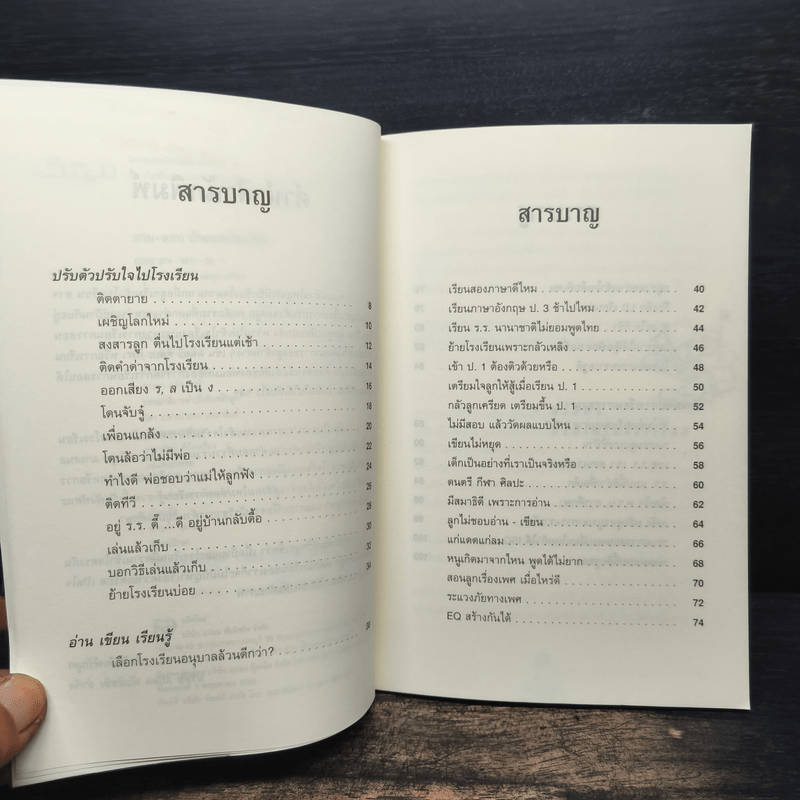 สารบาญ
ปรับตัวปรับใจไปโรงเรียน
ติดตายาย 8
เผชิญโลกใหม่ 10
สงสารลูก ตื่นไปโรงเรียนแต่เช้า 12
ติดคำด่าจากโรงเรียน 14
ออกเสียง ร, ล เป็น ง 16
โดนจับจู๋ 18
เพื่อนแกล้ง 20
โดนล้อว่าไม่มีพ่อ 22
ทำไงดี พ่อชอบว่าแม่ให้ลูกฟัง 24
ติดทีวี 26
อยู่ ร.ร. ดี๊ ...ดี อยู่บ้านกลับดื้อ 28
เล่นแล้วเก็บ 30
บอกวิธีเล่นแล้วเก็บ 32
ย้ายโรงเรียนบ่อย 34
อ่าน เขียน เรียนรู้
เลือกโรงเรียนอนุบาลล้วนดีกว่า?
สารบาญ
เรียนสองภาษาดีไหม 40
เรียนภาษาอังกฤษ ป. 3 ช้าไปไหม 42
เรียน ร.ร. นานาชาติไม่ยอมพูดไทย 44
ย้ายโรงเรียนเพราะกลัวเหลิง 46
เข้า ป. 1 ต้องติวด้วยหรือ 48
เตรียมใจลูกให้สู้เมื่อเรียน ป. 1 50
กลัวลูกเครียด เตรียมขึ้น ป. 1 52
ไม่มีสอบ แล้ววัดผลแบบไหน 54
เขียนไม่หยุด 56
เด็กเป็นอย่างที่เราเป็นจริงหรือ 58
ดนตรี กีฬา ศิลปะ 60
มีสมาธิดี เพราะการอ่าน 62
ลูกไม่ชอบอ่าน - เขียน 64
แก่แดดแก่ลม 66
หนูเกิดมาจากไหน พูดได้ไม่ยาก 68
สอนลูกเรื่องเพศ เมื่อไหร่ดี 70
ระแวงภัยทางเพศ 72
EQ สร้างกันได้ 74